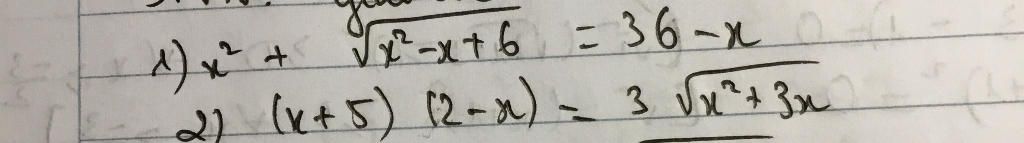 1) x² + √(x²-x+6) = 36-x
2) (x+5) (2-x) = 3 √(x²+3x)